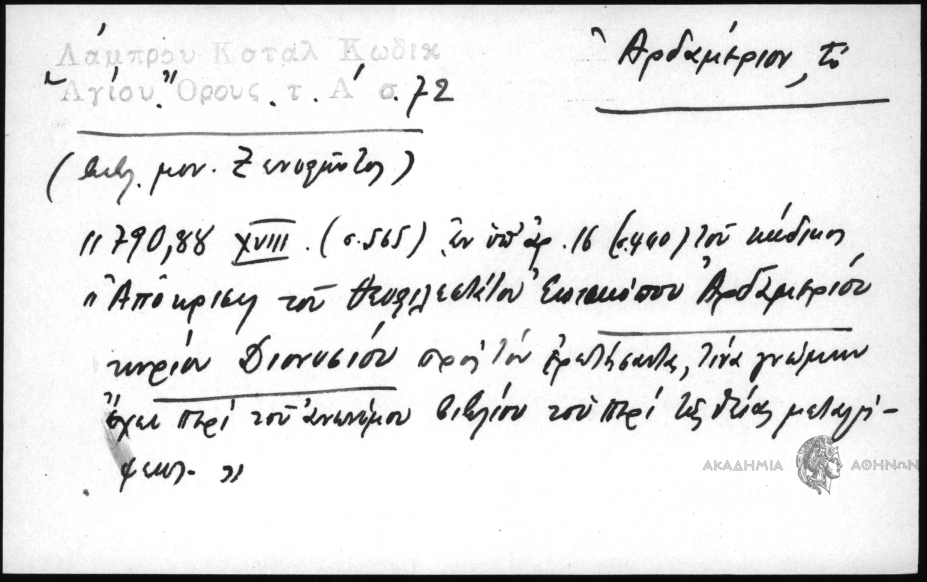 Λάμπρου Καταλ Κωδικ
Ἀρδαμέριον, τὸ
Ἁγίου Ὄρους τ. Α΄ σ. 72
(βιβλ. μον. Ξενοφῶντος)
"790,88 XVIII. (σ. 565) ἐν ὑπ' ἀρ. 16 (σ. 440) τοῦ κώδικος
"Ἀπόκρισις τοῦ θεοφιλεστάτου Ἐπισκόπου Ἀρδαμερίου
κυρίου Διονυσίου πρὸς τὸν ἐρωτήσαντα, τίνα γνώμην
ἔχει περὶ τοῦ ἀνωνύμου βιβλίου τοῦ περὶ τῆς θείας μεταλή-
ψεως."
ΑΚΑΔΗΜΙΑ ΑΘΗΝΩΝ